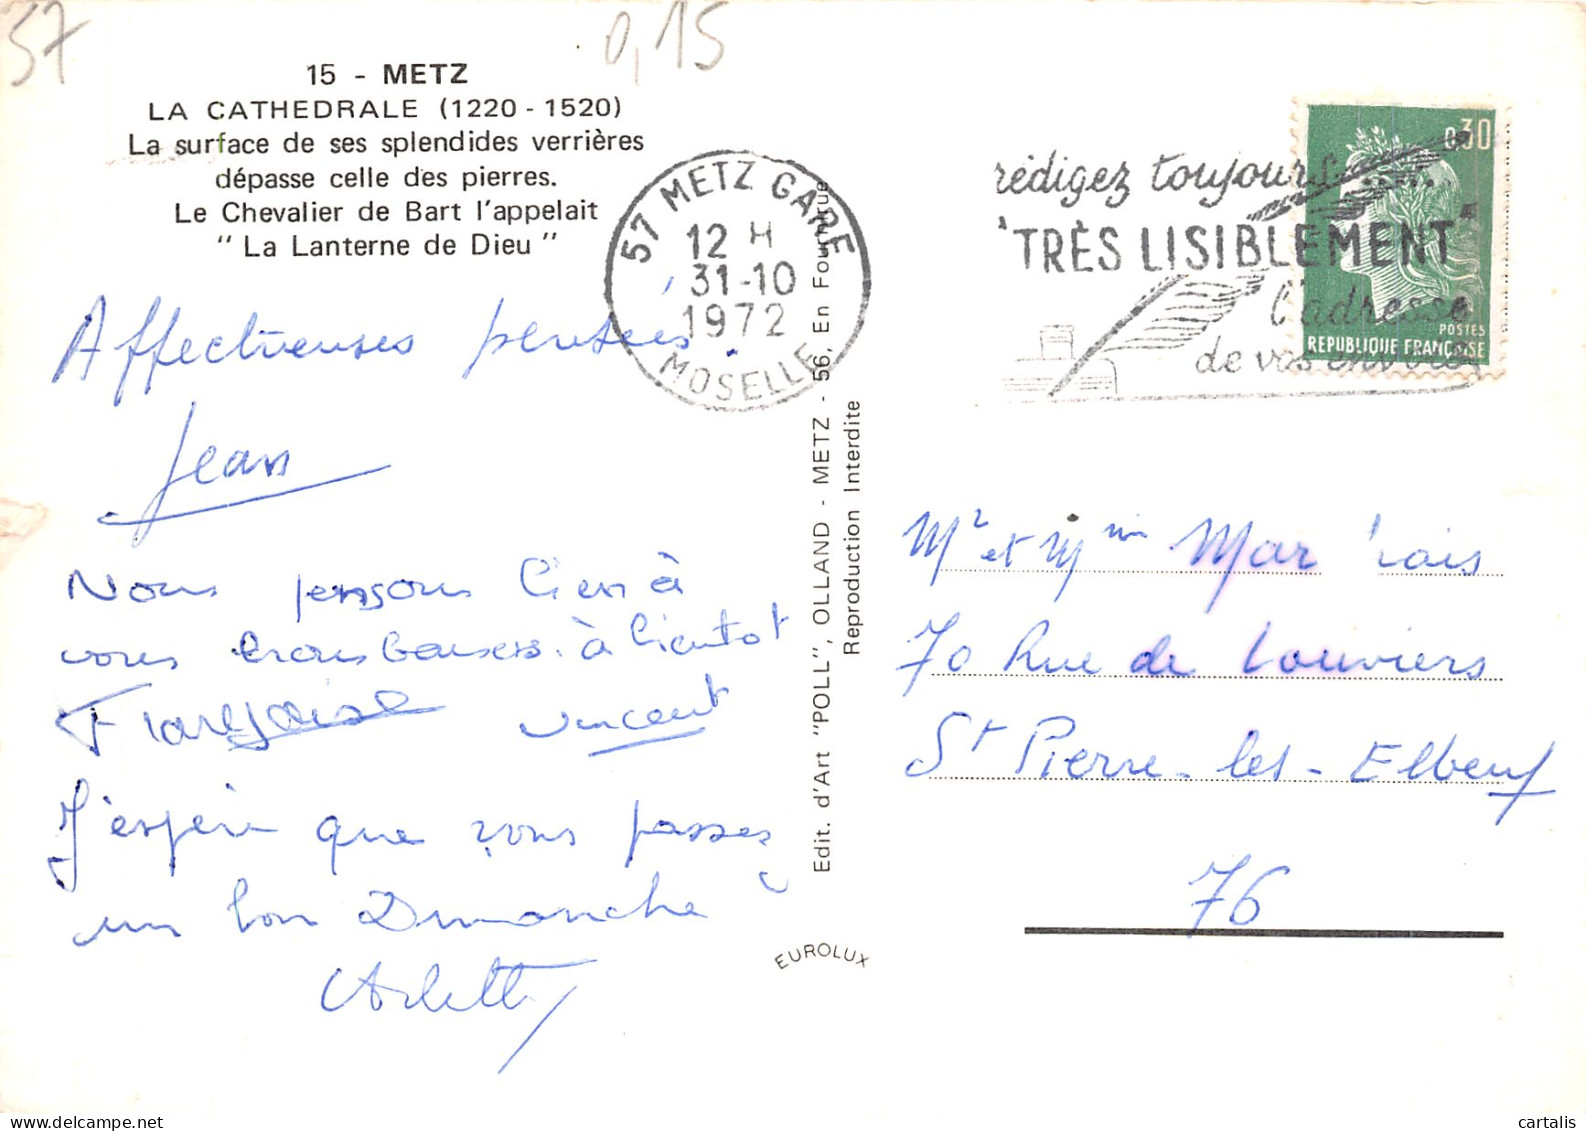 57
0,15
15 - METZ
LA CATHEDRALE (1220 - 1520)
La surface de ses splendides verrières
dépasse celle des pierres.
Le Chevalier de Bart l'appelait
" La Lanterne de Dieu "
57 METZ GARE
12 H
31-10
1972
MOSELLE
rédigez toujours
"TRÈS LISIBLEMENT"
l'adresse
de vos envois
0,30
POSTES
REPUBLIQUE FRANCAISE
Affectueuses pensées.
Jean
Nous pensons bien à
vous Gros baisers. à bientot
Françoise Vincent
J'espère que vous passez
un bon Dimanche
Arlette
Edit. d'Art "POLL", OLLAND - METZ - 56, En Fournirue
Reproduction Interdite
EUROLUX
Mr et Mme
70 Rue de Louviers
St Pierre-les-Elbeuf
76
cartalis
delcampe.net